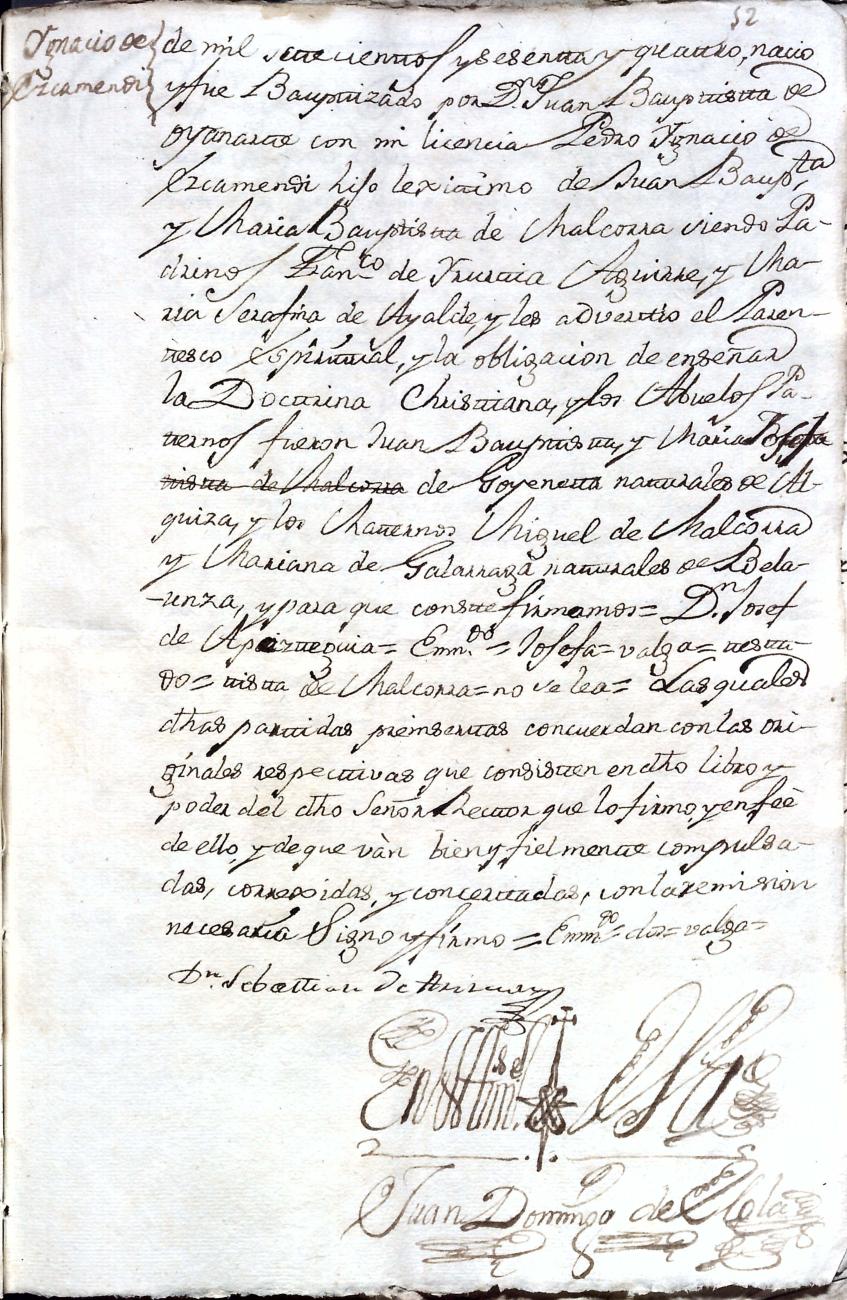 52
Ygnacio de
Ezcamendi
de mil setecientos y sesenta y quatro, nacio
y fue Bauptizado por Dn. Juan Bauptista de
oyanarte con mi licencia Pedro Ygnacio de
Ezcamendi hijo lexitimo de Juan Baupta.
y Maria Bauptista de Malcorra siendo Pa-
drinos Franco. de Yrurtia Aguirre, y Ma-
ria Serafina de Ayalde, y les advertio el Paren-
tesco Espiritual, y la obligacion de enseñar
la Doctrina Christiana, y los Abuelos Pa-
ternos fueron Juan Bauptista, y Maria Josefa
tista de Malcorra de Goyeneta naturales de Al-
quiza, y los Maternos Miguel de Malcorra
y Mariana de Galarraga naturales de Bela-
unza, y para que conste firmamos= Dn. Josef
de Apaiztegui= Emmdo.= Josefa= valga= testa-
do= tista de Malcorra= no se lea= Las quales
dhas partidas preinsertas concuerdan con las ori-
ginales respectivas que consisten en dho libro y
poder del dho Señor Rector que lo firmo, y en feè
de ello, y de que vàn bien y fielmente compulsa-
das, correxidas, y concertadas, con la remision
necesaria Signo y firmo = Emmdo= dor= valga=
Dn. Sebastian de
En testimo. de Vd.
Juan Domingo de